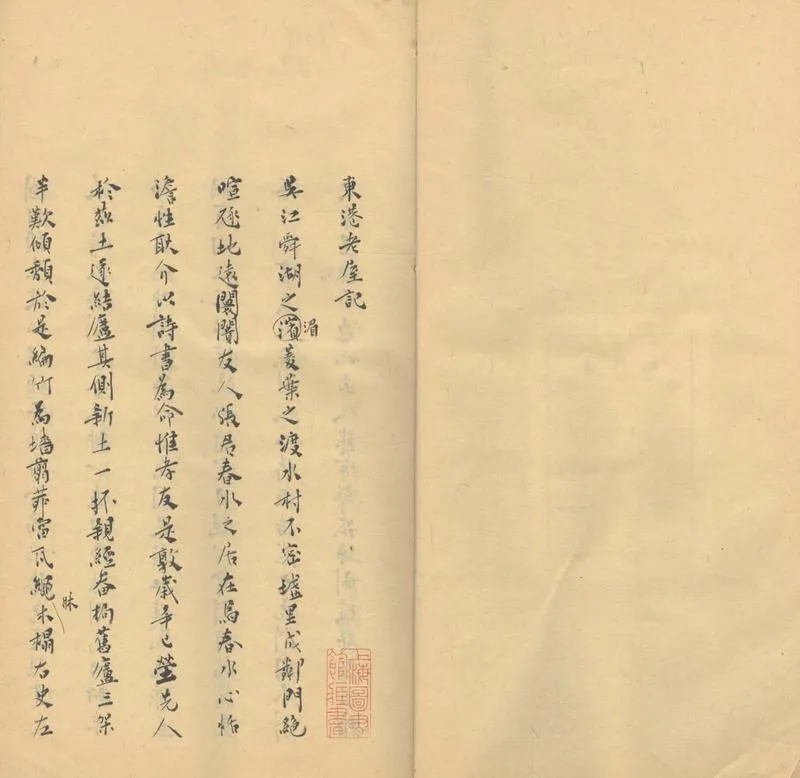 東港老屋記
吳江舜湖之濱菱葉之渡水村不密墟里成鄰門絕
湄
喧地遠闤闠友人張君春水之居在焉春水心恬
澹性耿介以詩書為命惟孝友是敦歲辛巳塋先人
於茲土遂結廬其側新土一抔親經畚挶舊廬三架
半歎傾頹於是編竹為墻翦茆當瓦繩木榻右史左
牀
上海圖書
館藏書